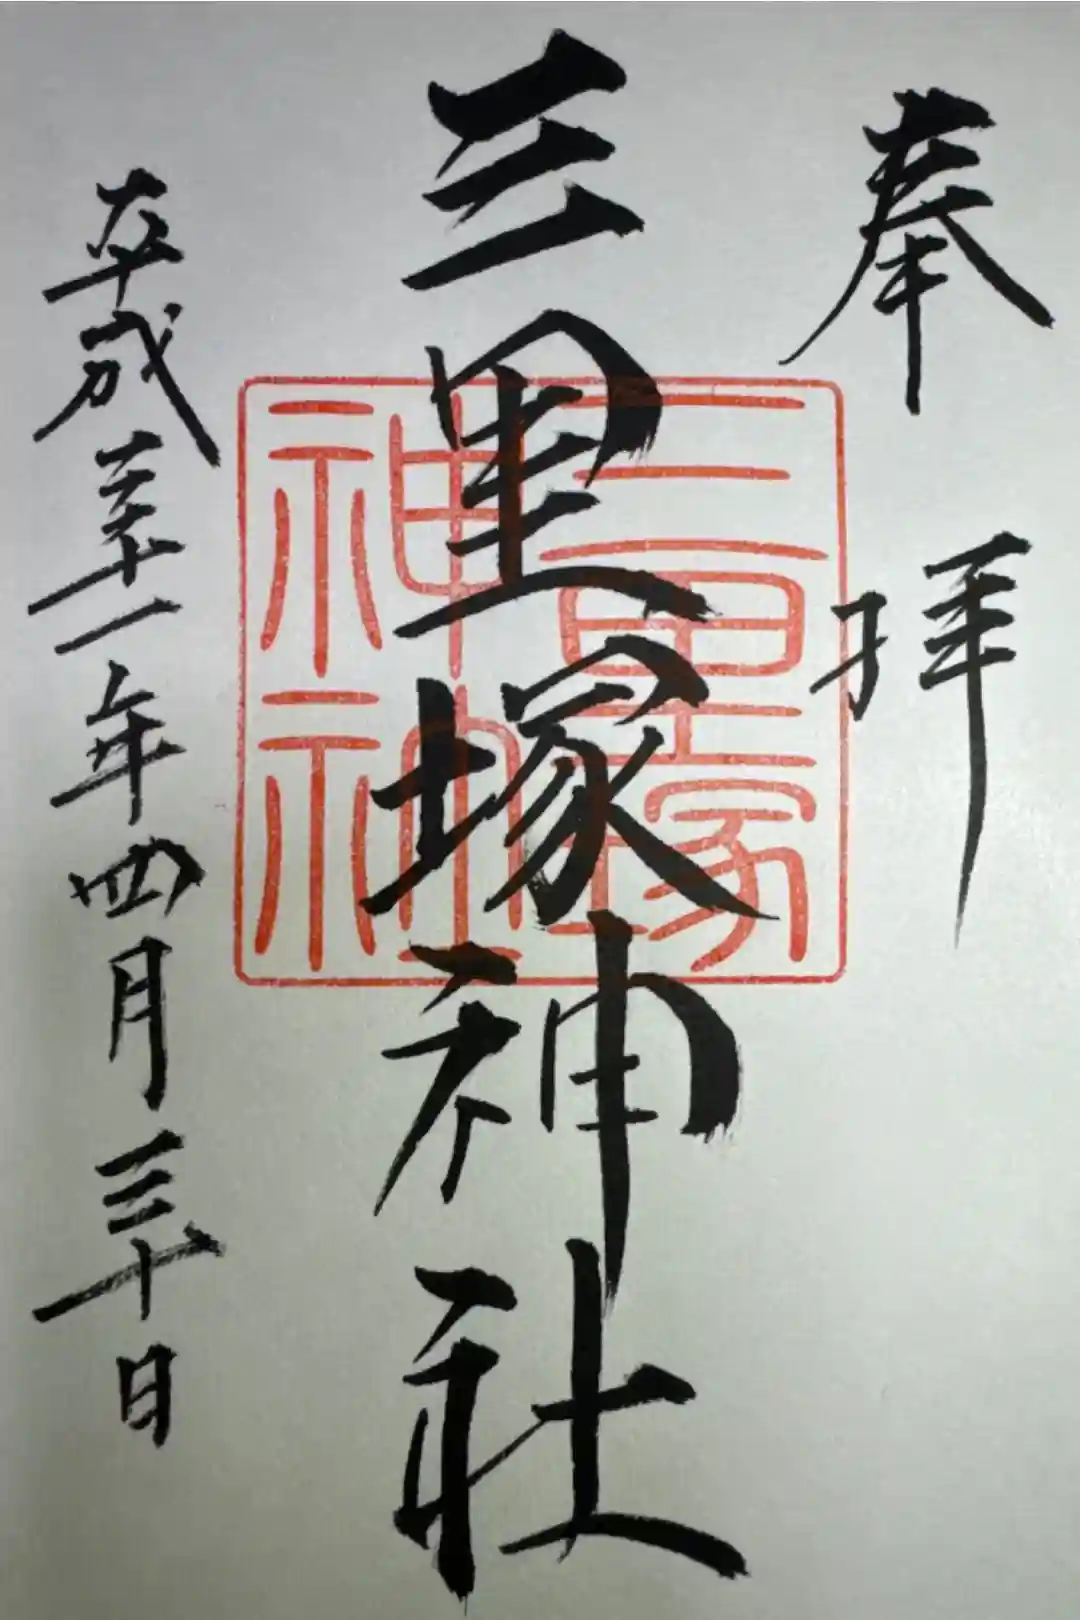 奉拝
三里塚神社
三里塚
神社
平成三十一年四月三十日